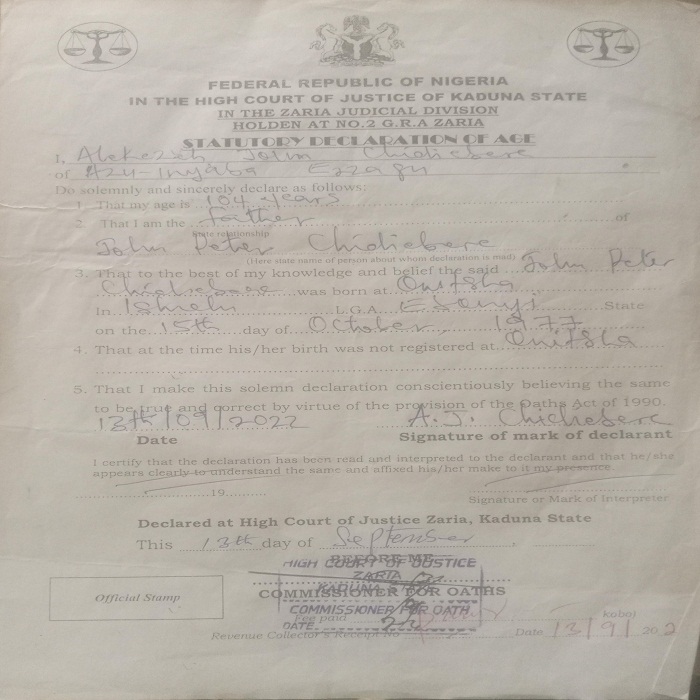 FEDERAL REPUBLIC OF NIGERIA
IN THE HIGH COURT OF JUSTICE OF KADUNA STATE
IN THE ZARIA JUDICIAL DIVISION
HOLDEN AT NO.2 G.R.A ZARIA
STATUTORY DECLARATION OF AGE
I, John Chidiebere
of Azu-Inyaba Ezzagu
Do solemnly and sincerely declare as follows:
1. That my age is 104 years
2. That I am the father of
(State relationship
John Peter Chidiebere
(Here state name of person about whom declaration is mad)
3. That to the best of my knowledge and belief the said John Peter
Chidiebere was born at Onitsha
In Ishielu L.G.A. Ebonyi State
on the 15th day of October, 1977
4. That at the time his/her birth was not registered at Onitsha
5. That I make this solemn declaration conscientiously believing the same
to be true and correct by virtue of the provision of the Oaths Act of 1990.
13th/09/2022 A.J. Chidiebere
Date Signature of mark of declarant
I certify that the declaration has been read and interpreted to the declarant and that he/she
appears clearly to understand the same and affixed his/her make to it my presence.
19
Signature or Mark of Interpreter
Declared at High Court of Justice Zaria, Kaduna State
This 13th day of September
BEFORE ME
HIGH COURT OF JUSTICE
ZARIA
COMMISSIONER FOR OATHS
COMMISSIONER FOR OATH
Official Stamp
Fee paid kobo)
DATE
Revenue Collector's Receipt No Date 13/9/202